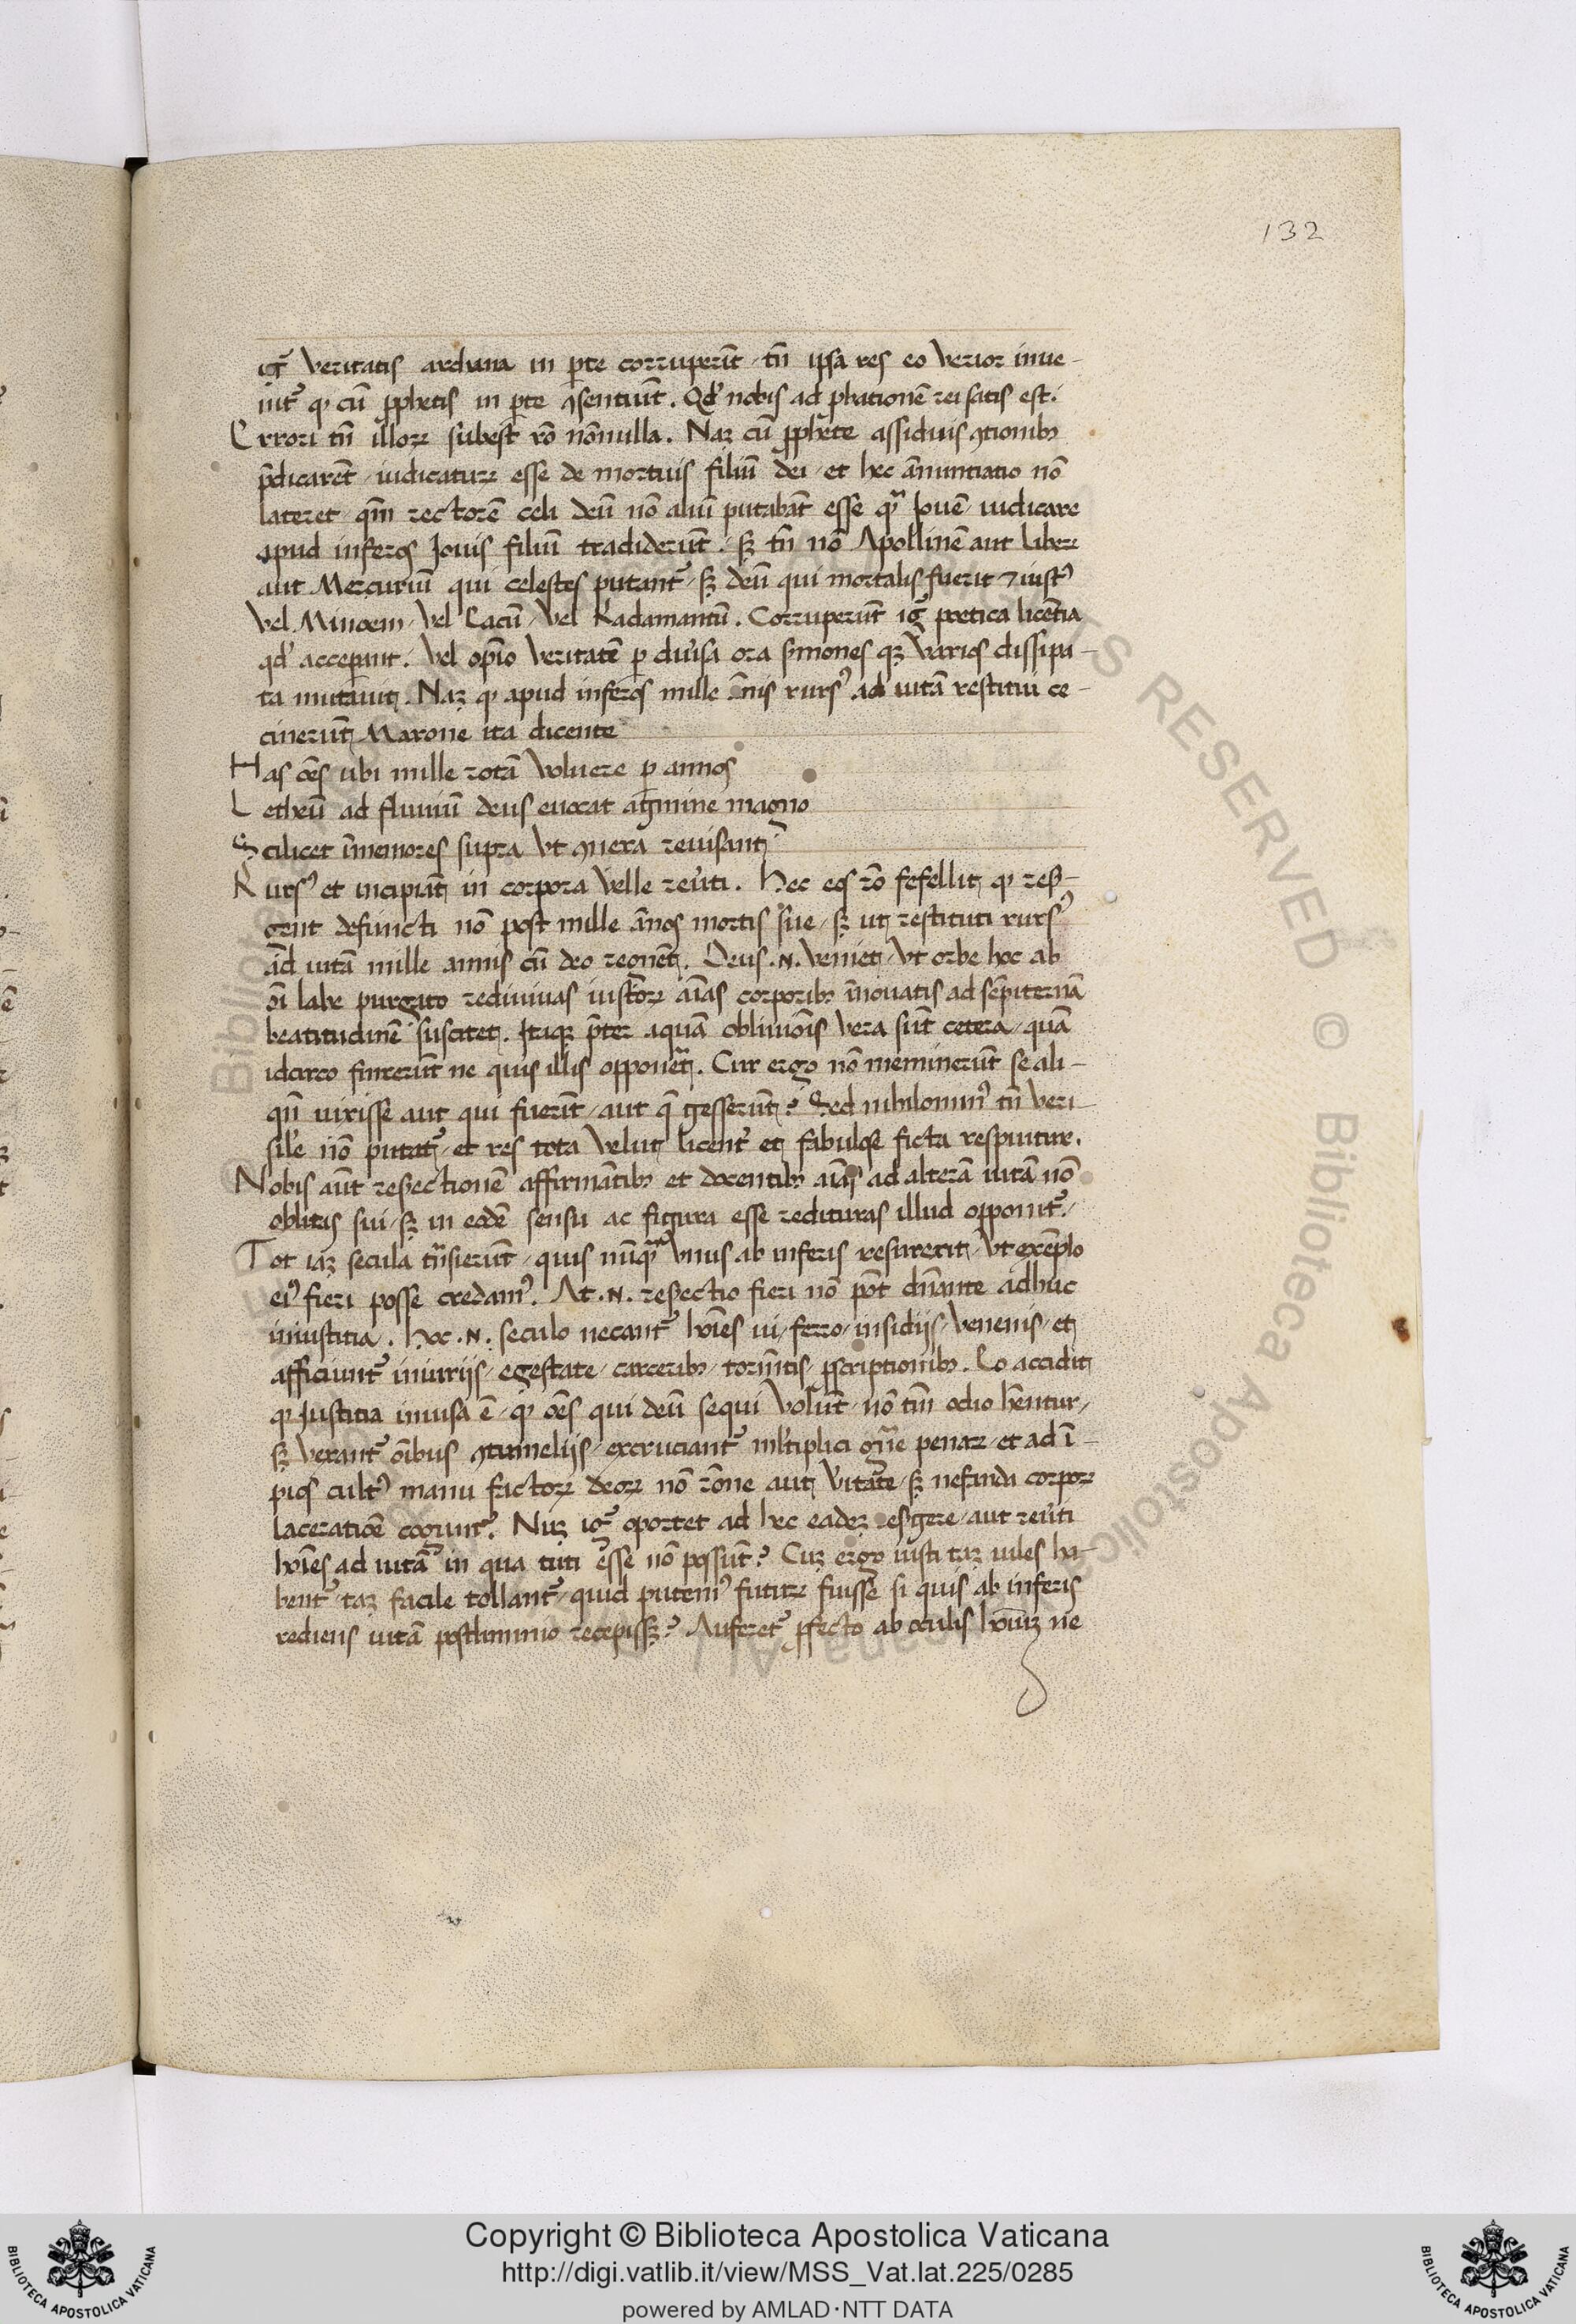 132
igr̄ veritatis archana in ꝑte corruperūt / tn̄ ipsa res eo verior inue-
nit᷑ ꝙ cū ꝓphetis in ꝑte ꝯsentiūt. Qd' nobis ad ꝓbationē rei satis est.
Errori tn̄ illoꝝ subest rō nōnulla. Naꝫ cū ꝓphete assiduis ꝯtionibꝰ
p̄dicarēt / iudicatuꝝ esse de mortuis filiū dei / et hec ānuntiatio nō
lateret / qm̄ rectorē celi deū nō aliū putabāt esse qᷓ Iouē / iudicare
apud inferos Iouis filiū tradiderūt / sꝫ tn̄ nō Apollinē aut Libeꝝ
aut Mercuriū qui celestes putant᷑ / sꝫ deū qui mortalis fuerit ⁊ iustꝰ
vel Minoem / vel Eacū / vel Radamantū. Corruperūt igr̄ poetica licētia
qd' acceperant. vel opīo veritatē ꝑ diu'sa ora sermones qꝫ varios dissipa-
ta mutauit. Naꝫ ꝙ apud inferos mille ānis rursꝰ ad uitā restitui ce-
cinerūt Marone ita dicente
Has oēs ubi mille rotā voluere ꝑ annos
Letheū ad fluuiū deus euocat agmine magno
Scilicet īmemores supra vt ꝯuexa reuisant
Rursꝰ et incipiāt in corpora velle reu'ti. Hec eos rō fefellit ꝙ resꝰ-
gent defuncti nō post mille ānos mortis sue / sꝫ ut restituti rursꝰ
ad uitā mille annis cū deo regnēt. Deus .N. veniet / vt orbe hoc ab
oī labe purgato rediuiuas iustoꝝ aīas corporibꝰ īnouatis ad sēpiternā
beatitudinē suscitet. Itaqꝫ p̄ter aquā obliuiōis vera sūt cetera / quā
idcirco finxerūt ne quis illis opponeret. Cur ergo nō meminerūt se ali-
qn̄ uixisse aut qui fuerīt / aut q̄ gesserūt? Sed nihilominꝰ tn̄ veri
sil'e nō putat᷑ / et res tota velut licent' et fabulose ficta respuitur.
Nobis aūt resꝰectionē affirmātibꝰ et docentibꝰ aīas ad alterā uitā nō
oblitas sui / sꝫ in eodē sensu ac figura esse redituras illud opponit᷑.
Tot iaꝫ secula trāsierūt / quis nūqᷓ vnus ab inferis resurexit / vt exēplo
eiꝰ fieri posse credamꝰ. At .N. resꝰectio fieri nō pōt dn̄ante adhuc
iniustitia. Hoc .N. seculo necant᷑ hoīes ui / ferro / insidijs / venenis / et
afficiunt᷑ iniurijs / egestate / carceribꝰ / tormētis / ꝓscriptionibꝰ. Eo accidit
ꝙ Iustitia inuisa ē / ꝙ oēs qui deū sequi volūt / nō tm̄ odio hēntur /
sꝫ vexant᷑ oībus ꝯtumelijs / excruciant᷑ ml'tiplici gn̄e penaꝝ / et ad ī-
pios cultꝰ manu factoꝝ deoꝝ nō rōne aut v'itate / sꝫ nefanda corpoꝝ
laceratiōe cogunt᷑. Nūꝫ igr̄ oportet ad hec eadeꝫ resꝰgere / aut reu'ti
hoīes ad uitā in qua tuti esse nō possūt? Cuꝫ ergo iusti taꝫ uiles ha-
bent᷑ / taꝫ facile tollant᷑ / quid putemꝰ futuꝝ fuisse si quis ab inferis
rediens uitā postliminio recepissꝫ? Auferet᷑ ꝓfecto ab oculis hoīuꝫ ne
Copyright © Biblioteca Apostolica Vaticana
http://digi.vatlib.it/view/MSS_Vat.lat.225/0285
powered by AMLAD·NTT DATA